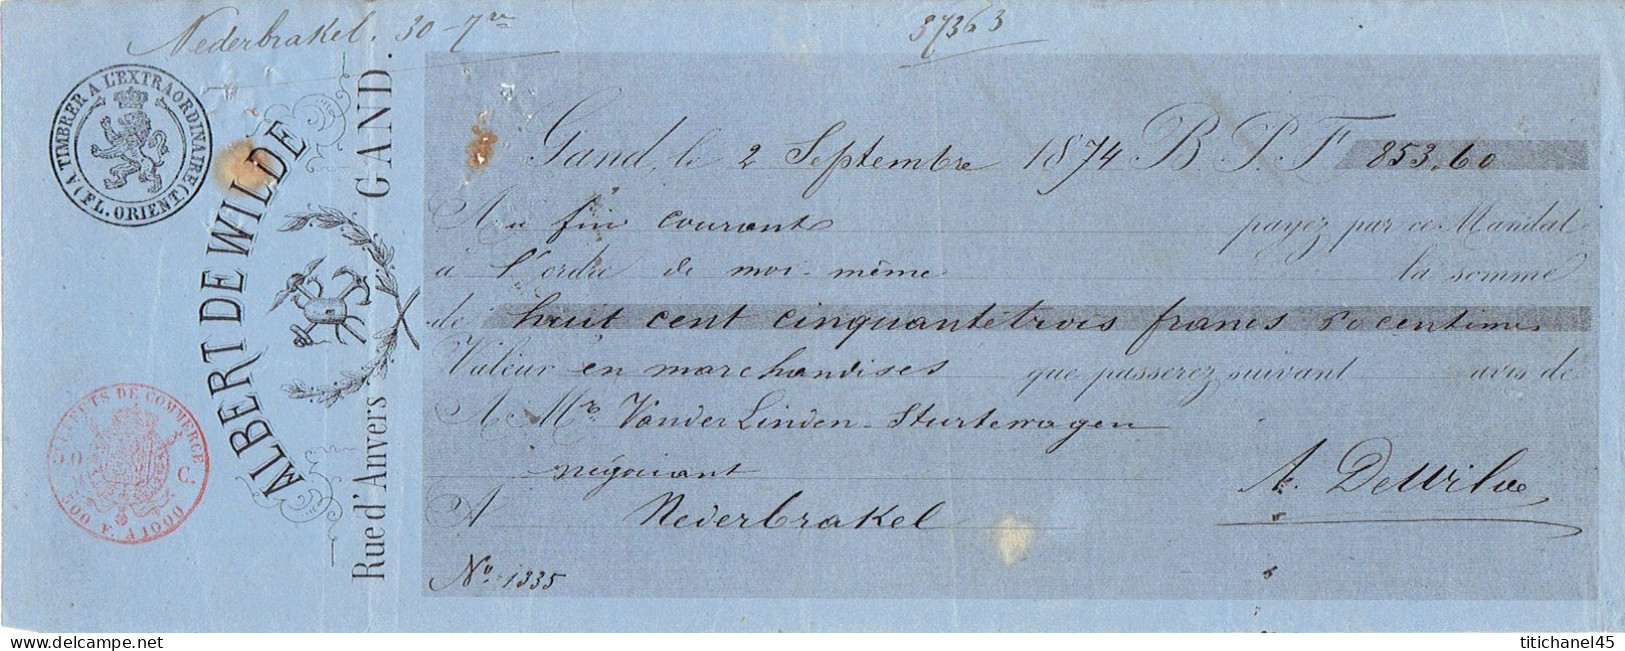 Nederbrakel. 30-7re
37363
A TIMBRER A L'EXTRAORDINAIRE
(FL. ORIENT.)
ALBERT DE WILDE
Rue d'Anvers GAND.
EFFETS DE COMMERCE
50 C.
500 F. A 1000
Gand, le 2 Septembre 1874 B. P. F 853,60
Au fin courant payez par ce Mandat
à l'ordre de moi-même la somme
de huit cent cinquantetrois francs 60 centimes
Valeur en marchandises que passerez suivant avis de
A Mr. Vander Linden-Sturtewagen
négociant
A. DeWilde
A Nederbrakel
No. 1335
delcampe.net
titichanel45